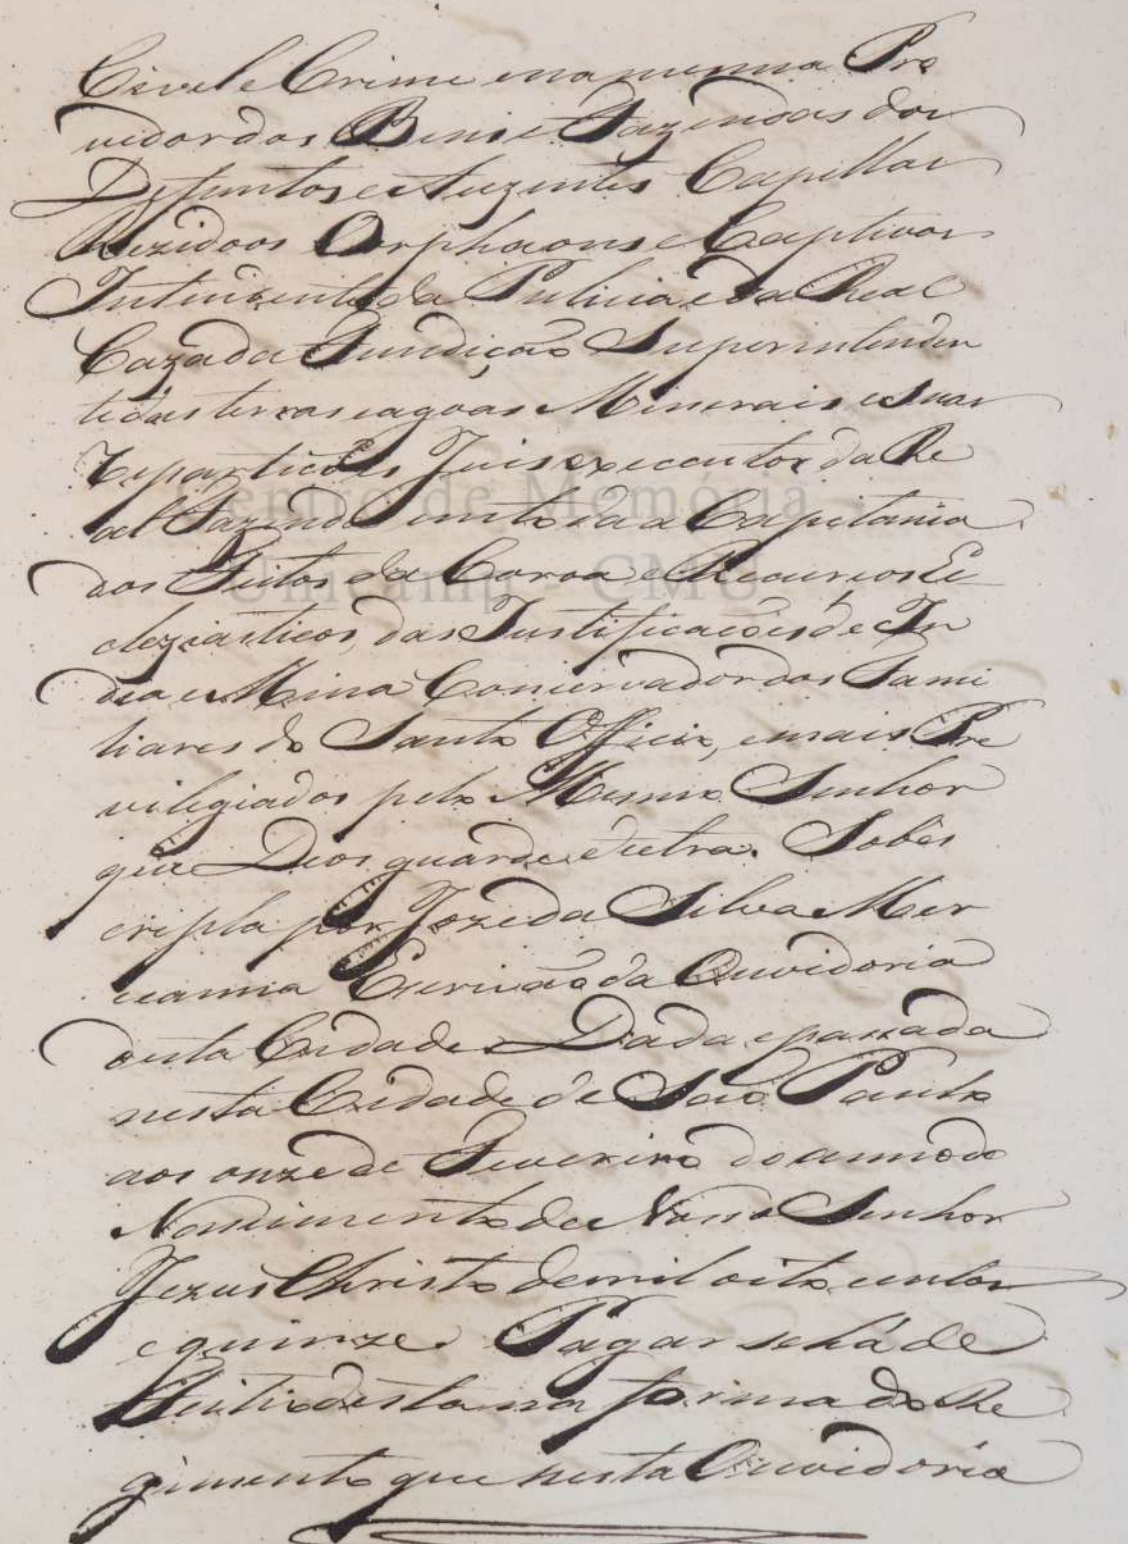 Civel e Crime e na mesma Pro
vedor dos Bens e Fazendas dos
Defuntos e Auzentes Capellas
Rezidoos Orphaons e Captivos
Intendente da Pulicia e da Real
Caza da Fundição Superintenden
te das terras e agoas Minerais e suas
Repartições Juis executor da Re
al Fazenda e toda a Capitania
dos Feitos da Coroa e Recursos Ec
cleziasticos, das Justificações de In
dia e Mina Conservador dos Fami
liares do Santo Officio, e mais Pre
vilegiados pelo Mesmo Senhor
que Deos guarde etetra. Sobes
cripta por Joze da Silva Mer
ceanna Escrivão da Ouvidoria
desta Cidade Dada e passada
nesta Cidade de São Paulo
aos onze de Fevereiro do anno do
Nascimento de Nosso Senhor
Jezus Christo de mil oito centos
e quinze. Pagar se há de
Feitio desta na forma do Re
gimento que nesta Ouvidoria
Centro de Memória
Unicamp - CMU